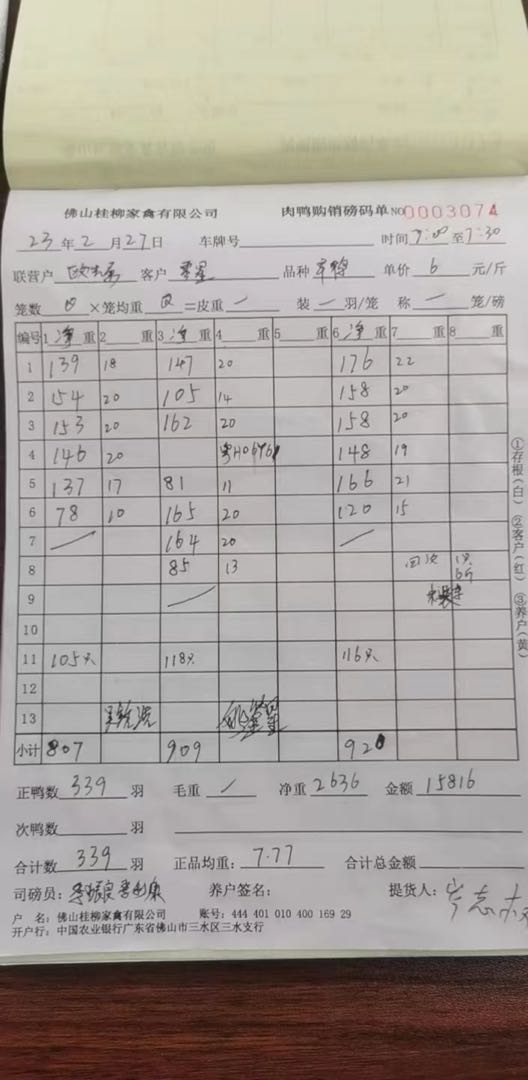 佛山桂柳家禽有限公司 肉鸭购销磅码单 NO 0003074
23 年 2 月 27 日 车牌号 时间 7:00 至 7:30
联营户 客户 李星 品种 单价 6 元/斤
笼数 ×笼均重 =皮重 一 装 一 羽/笼 称 一 笼/磅
编号 1 净 重 2 重 3 净 重 4 重 5 重 6 净 重 7 重 8 重
1 139 18 147 20 176 22
2 154 20 105 14 158 20
3 153 20 162 20 158 20
4 146 20 粤H06961 148 19
5 137 17 81 11 166 21
6 78 10 165 20 120 15
7 164 20
8 85 13 1只 6斤
9
10
11 105只 118只 116只
12
13
小计 807 909 920
正鸭数 339 羽 毛重 / 净重 2636 金额 15816
次鸭数 羽
合计数 339 羽 正品均重: 7.77 合计总金额
司磅员: 养户签名: 提货人:
户 名: 佛山桂柳家禽有限公司 账号: 444 401 010 400 169 29
开户行: 中国农业银行广东省佛山市三水区三水支行
①存根(白) ②客户(红) ③养户(黄)